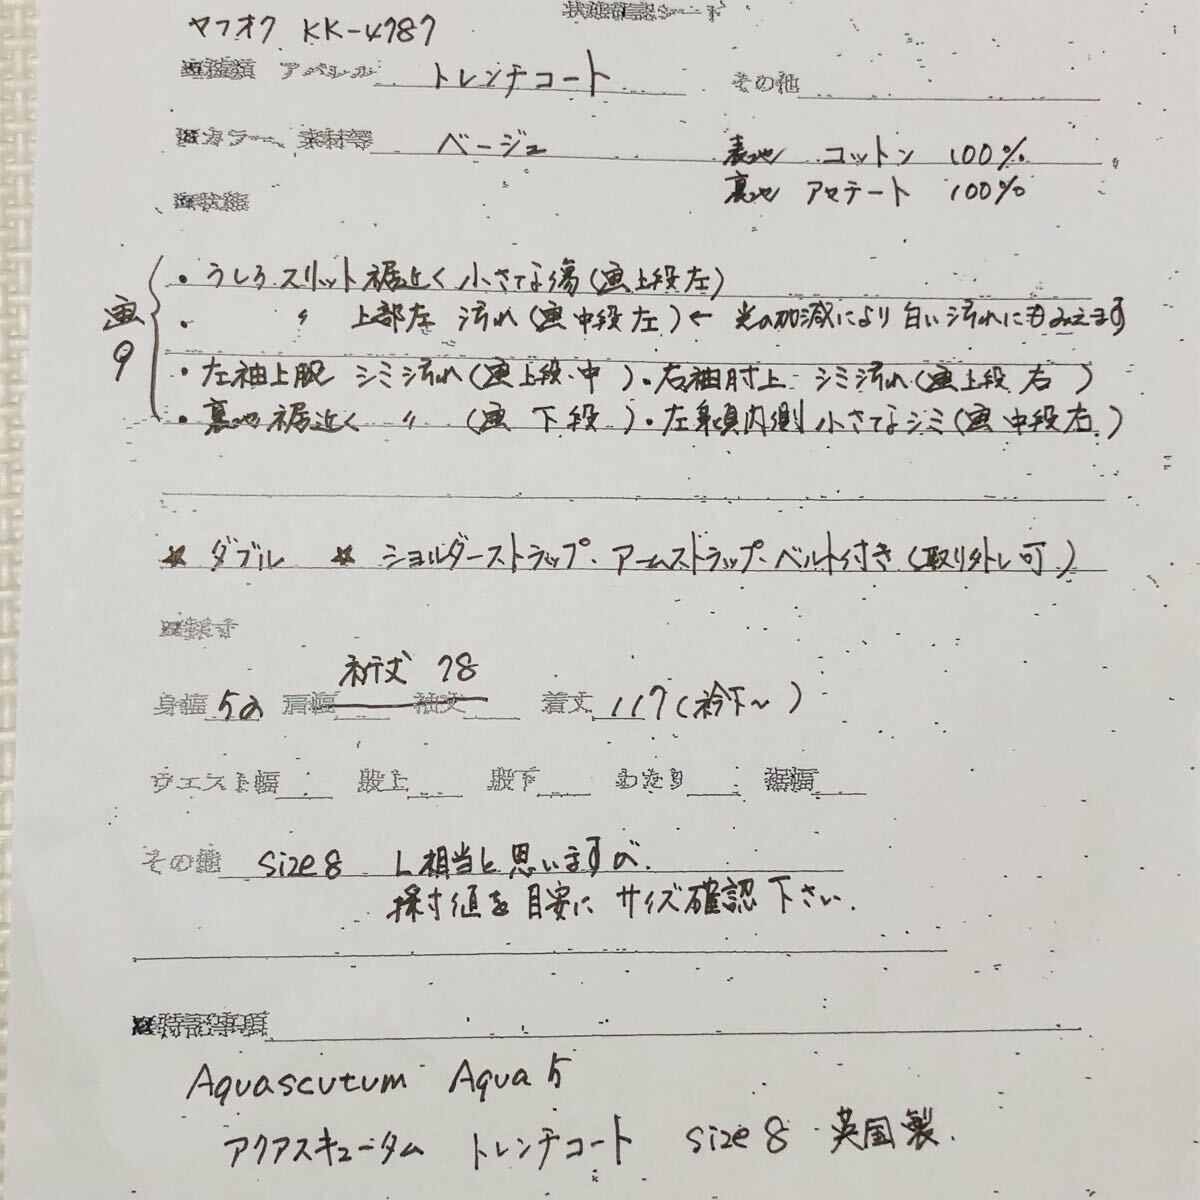 状態確認シート
ヤフオク KK-4787
■種類 アパレル トレンチコート その他
■カラー、素材等 ベージュ 表地 コットン 100%
裏地 アセテート 100%
■状態
画9
・うしろスリット裾近く 小さな傷(画上段左)
・ 〃 上部左 汚れ(画中段左)← 光の加減により白い汚れにもみえます
・左袖上腕 シミ汚れ(画上段中)・右袖肘上 シミ汚れ(画上段右)
・裏地裾近く 〃 (画下段)・左身頃内側 小さなシミ(画中段右)
★ ダブル ★ ショルダーストラップ・アームストラップ・ベルト付き(取り外し可)
■採寸
裄丈 78
身幅 50 肩幅 袖丈 着丈 117(衿下~)
ウエスト幅 股上 股下 わたり 裾幅
その他 size8 L相当と思いますが、
採寸値を目安に サイズ確認下さい。
■特記事項
Aquascutum Aqua5
アクアスキュータム トレンチコート size8 英国製.